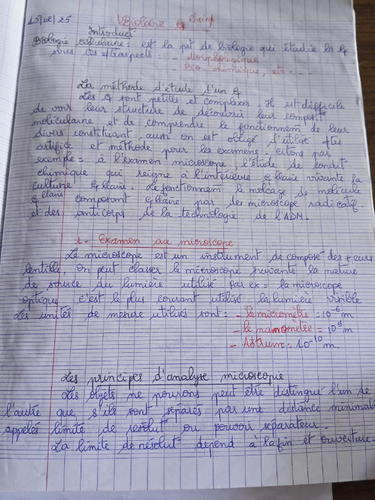 Introduct
Biologie cellulaire : est la pst de biologie qui étudie la
sous ses ≠ts aspects : - Morphologique
Bio chimique, etc - - -
La méthode d'étude d'un
Les sont petites et complexes. Il est difficile
de voir leur structure de découvrir leur composit°
moléculaire et de comprendre le fonctionnem de leur
divers constituant, aussi on est obligé d'utilisé
artifice et méthode pour les examens. citons par
exemple : à l'examen microscope l'étude de
chimique qui reigne à l'intérieur vivante la
culture Le fonctionnem le molécule
composant par des microscope
et des anticorps de la technologie de l'ADN.
1- Examen au microscope
Le microscope est un instrument de composé des +eurs
lentille, on peut classer le microscope suivante la nature
de source du lumière utilisé par ex = la microscope
optique c'est le plus courant utilisé la lumière visible
Les unités de mesure utilisés sont : - le micromètre = 10⁻⁶ m
- le nanomètre = 10⁻⁹ m
= 10⁻¹⁰ m.
Les principes d'analyse microscopie
Les objets ne pourrons peut être distingué l'un de
l'autre que s'ils sont séparés par une distance minimale
appelés limite de résolut° ou pouvoir séparateur.
La limite de résolut° dépend à la fin et ouverture.